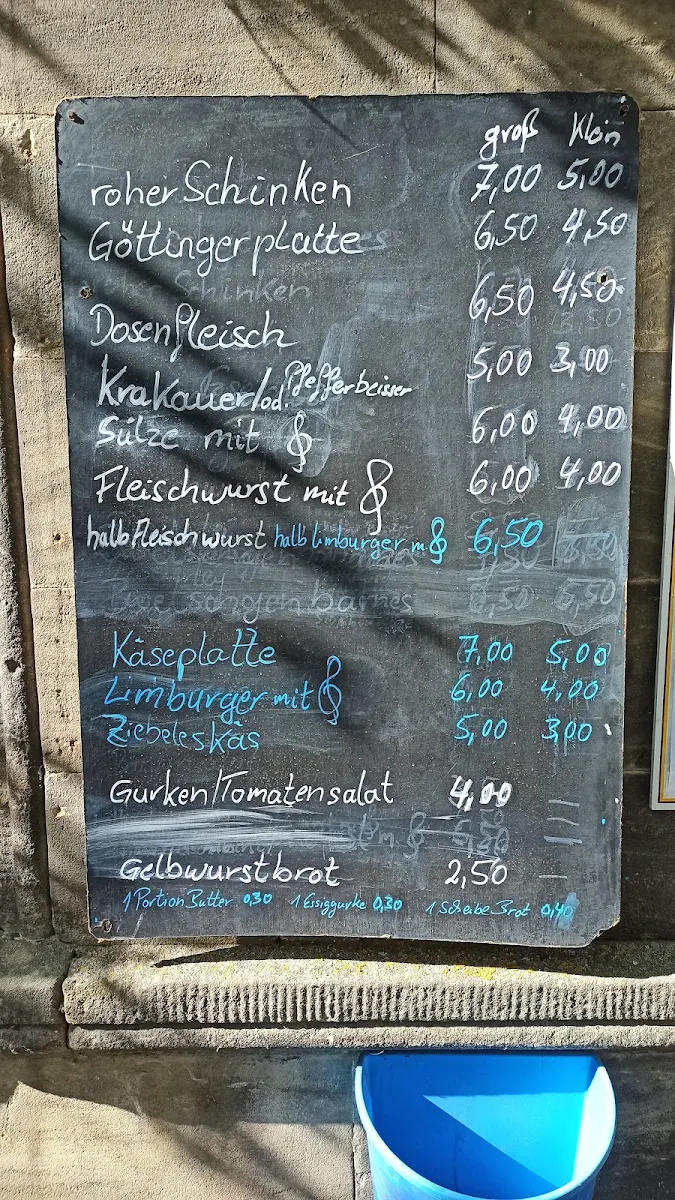 groß Klein
roher Schinken 7,00 5,00
Göttingerplatte 6,50 4,50
Dosenfleisch 6,50 4,50
Krakauer/od. Pfefferbeisser 5,00 3,00
Sülze mit 𝄞 6,00 4,00
Fleischwurst mit 𝄞 6,00 4,00
halb Fleischwurst halb Limburger m. 𝄞 6,50
Käseplatte 7,00 5,00
Limburger mit 𝄞 6,00 4,00
Ziebeleskäs 5,00 3,00
Gurken/Tomatensalat 4,00 —
Gelbwurstbrot 2,50 —
1 Portion Butter 0,30 1 Essiggurke 0,30 1 Scheibe Brot 0,40